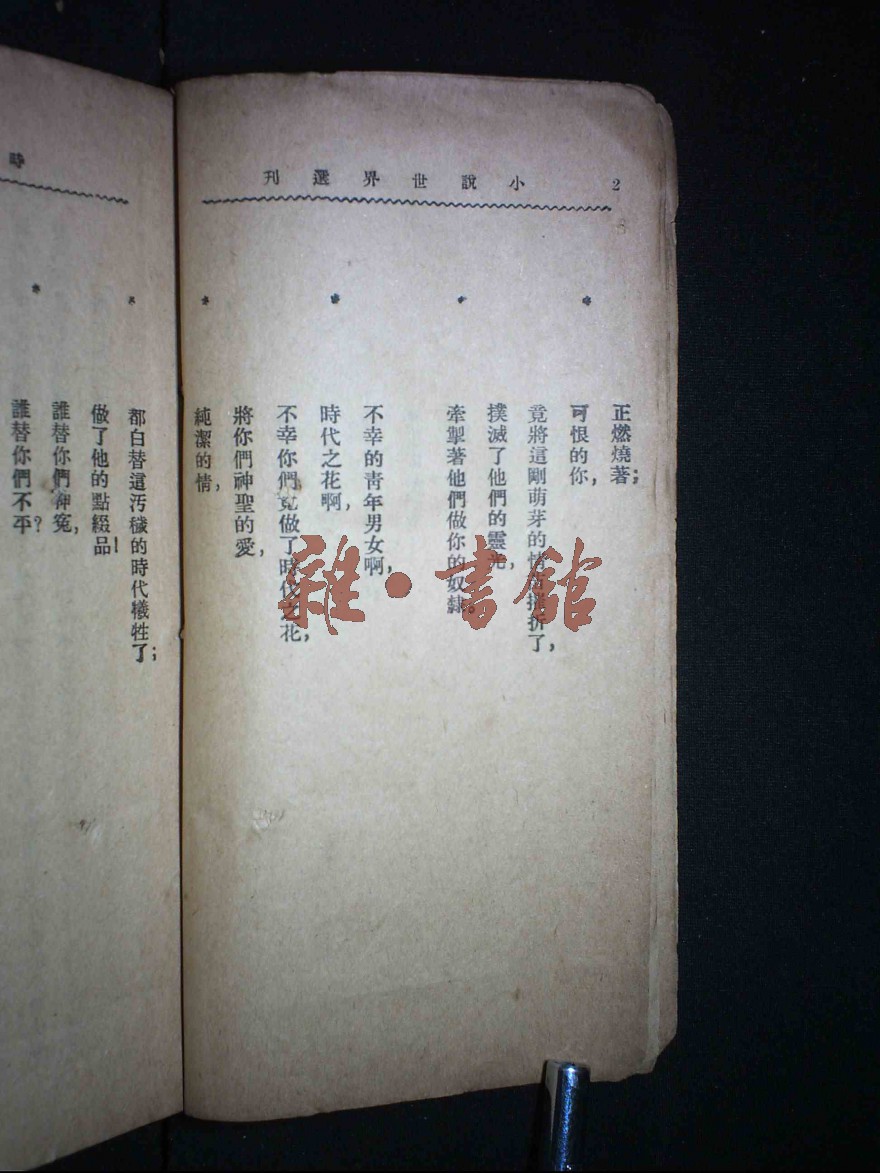 2 小說世界選刊
正燃燒著；
可恨的你，
竟將這剛萌芽的情苗摧折了，
撲滅了他們的靈光，
牽掣著他們做你的奴隸。
不幸的青年男女啊，
時代之花啊，
不幸你們竟做了時代之花，
將你們神聖的愛，
純潔的情，
時
都白替這汚穢的時代犧牲了；
做了他的點綴品！
誰替你們伸冤，
誰替你們不平？
雜·書館